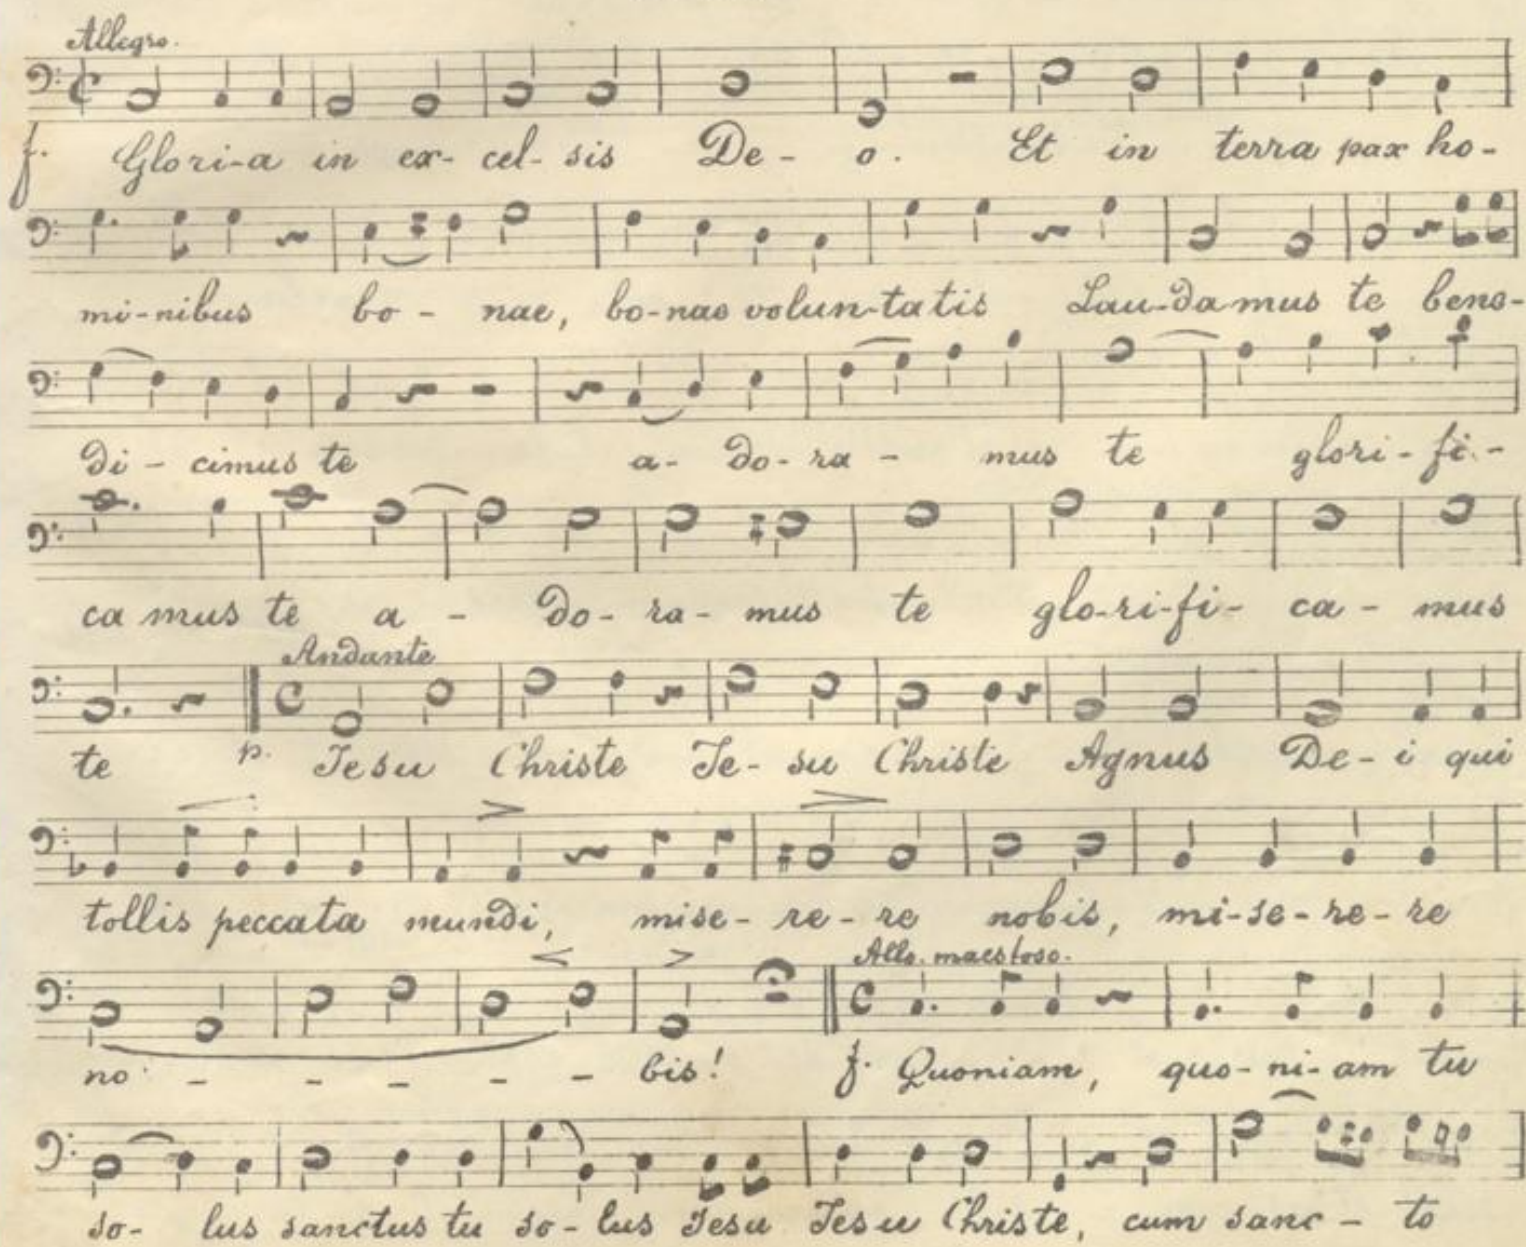 Allegro.
f. Glori-a in ex- cel- sis De- o. Et in terra pax ho-
mi-nibus bo- nae, bo-nae volun-tatis Lau-damus te bene-
di- cimus te a- do-ra- mus te glori-fi-
camus te a- do-ra-mus te glo-ri-fi- ca- mus
Andante
te p. Jesu Christe Je-su Christe Agnus De-i qui
tollis peccata mundi, mise-re-re nobis, mi-se-re-re
Allo. maestoso.
no - - - - - bis! f. Quoniam, quo-ni-am tu
so- lus sanctus tu so-lus Jesu Jesu Christe, cum sanc- to